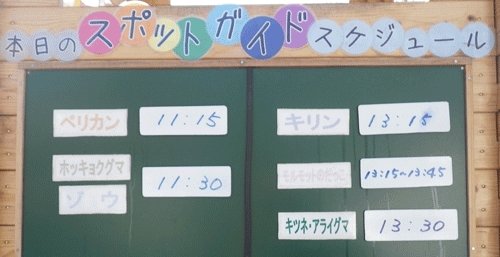 本日のスポットガイドスケジュール
ペリカン 11:15
ホッキョクグマ
ゾウ 11:30
キリン 13:15
モルモットのだっこ 13:15~13:45
キツネ・アライグマ 13:30